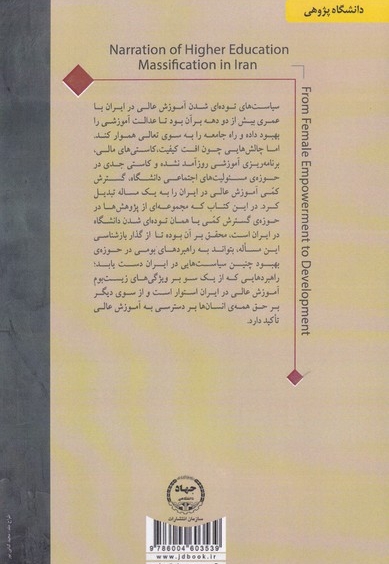 دانشگاه پژوهی
Narration of Higher Education
Massification in Iran
From Female Empowerment to Development
سیاست‌های توده‌ای شدن آموزش عالی در ایران با
عمری بیش از دو دهه بر‌آن بود تا عدالت آموزشی را
بهبود داده و راه جامعه را به سوی تعالی هموار کند.
اما چالش‌هایی چون افت کیفیت، کاستی‌های مالی،
برنامه‌ریزی آموزشی روزآمد نشده و کاستی جدی در
حوزه‌ی مسئولیت‌های اجتماعی دانشگاه، گسترش
کمّی آموزش عالی در ایران را به یک مساله تبدیل
کرد. در این کتاب که مجموعه‌ای از پژوهش‌ها در
حوزه‌ی گسترش کمّی یا همان توده‌ای شدن دانشگاه
در ایران است، محقق بر آن بوده تا از گذار بازشناسی
این مسأله، بتواند به راهبردهای بومی در حوزه‌ی
بهبود چنین سیاست‌هایی در ایران دست یابد؛
راهبردهایی که از یک سو بر ویژگی‌های زیست‌بوم
آموزش عالی در ایران استوار است و از سوی دیگر
بر حق همه‌ی انسان‌ها بر‌دسترسی به آموزش عالی
تأکید دارد.
جهاد
دانشگاهی
سازمان انتشارات
9786004603539
www.jdbook.ir